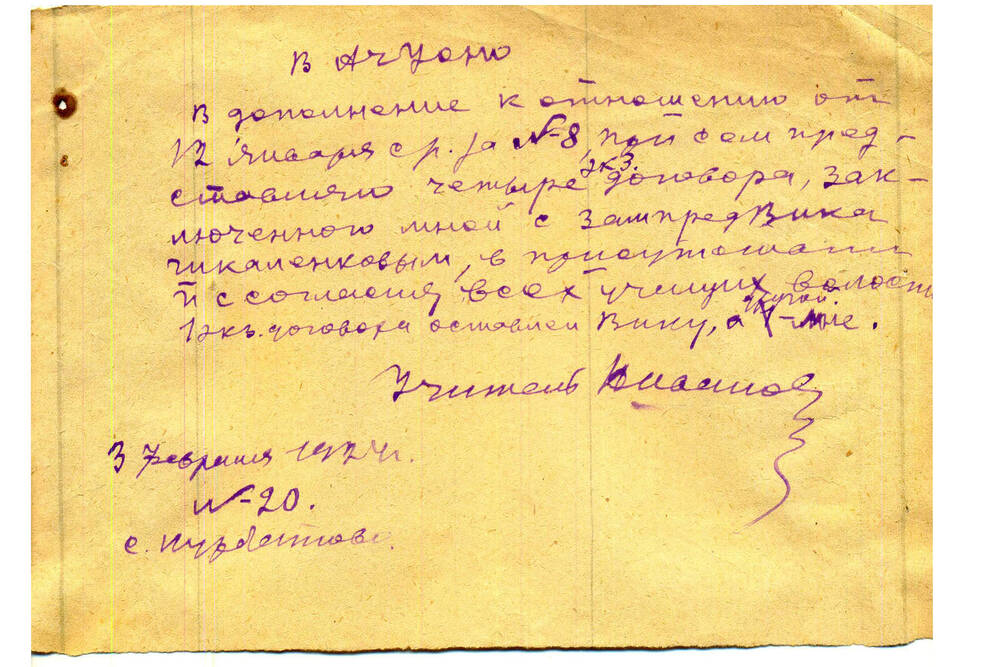 В АчУоно
В дополнение к отношению от
12 января с р. за №8, при сем пред-
ставляю четыре экз. договора, зак-
люченного мной с зампредВика
Чикаленковым, в присутствии
и с согласия всех учащих волости
1 экз. договора оставлен Вику, а другой - мне.
Учитель
3 февраля 1924 г.
№20.
с. Курбатово.